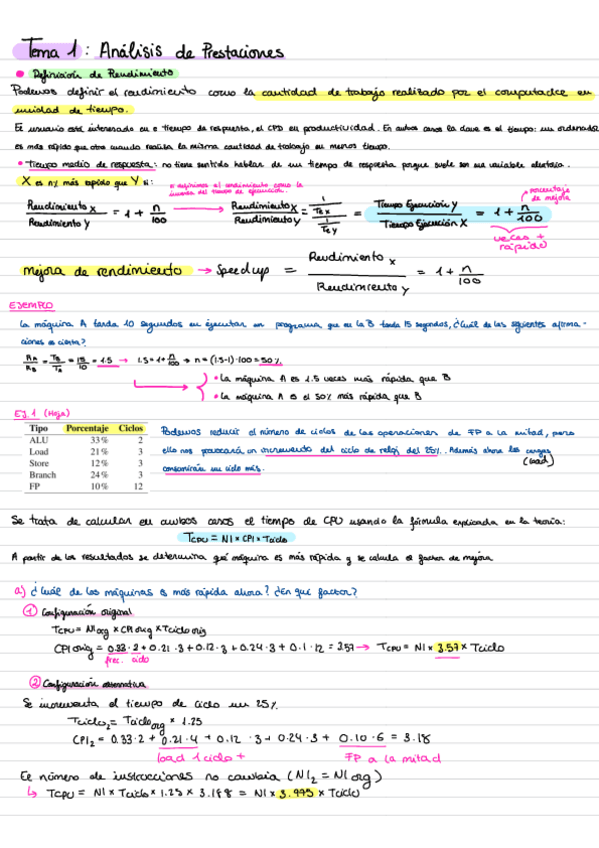 Tema 1: Análisis de Prestaciones
• Definición de Rendimiento
Podemos definir el rendimiento como la cantidad de trabajo realizado por el computador en
unidad de tiempo.
El usuario está interesado en el tiempo de respuesta, el CPD en productividad. En ambos casos la clave es el tiempo: un ordenador
es más rápido que otro cuando realiza la misma cantidad de trabajo en menos tiempo.
• Tiempo medio de respuesta: no tiene sentido hablar de un tiempo de respuesta porque suele ser una variable aleatoria.
X es n% más rápido que Y si:
si definimos el rendimiento como la
inversa del tiempo de ejecución.
porcentaje
de mejora
Rendimiento X / Rendimiento Y = 1 + n/100 → Rendimiento X / Rendimiento Y = (1/TEX) / (1/TEY) = Tiempo Ejecución Y / Tiempo Ejecución X = 1 + n/100
veces +
rápido
mejora de rendimiento → Speedup = Rendimiento X / Rendimiento Y = 1 + n/100
EJEMPLO
La máquina A tarda 10 segundos en ejecutar un programa que en la B tarda 15 segundos, ¿Cuál de las siguientes afirma-
ciones es cierta?
RA/RB = TB/TA = 15/10 = 1.5 → 1.5 = 1 + n/100 → n = (1.5-1)·100 = 50%
• La máquina A es 1.5 veces más rápida que B
• La máquina A es el 50% más rápida que B
EJ. 1 (Hoja)
Tipo Porcentaje Ciclos
ALU 33% 2
Load 21% 3
Store 12% 3
Branch 24% 3
FP 10% 12
Podemos reducir el número de ciclos de las operaciones de FP a la mitad, pero
ello nos provocará un incremento del ciclo de reloj del 25%. Además ahora las cargas
(load)
consumirán un ciclo más.
Se trata de calcular en ambos casos el tiempo de CPU usando la fórmula explicada en la teoría:
TCPU = NI × CPI × Tciclo
A partir de los resultados se determina qué máquina es más rápida y se calcula el factor de mejora
a) ¿Cuál de las máquinas es más rápida ahora? ¿En qué factor?
① Configuración original
TCPU = NIorg × CPIorig × Tciclo orig
CPIorig = 0.33·2 + 0.21·3 + 0.12·3 + 0.24·3 + 0.1·12 = 3.57 → TCPU = NI × 3.57 × Tciclo
frec. ciclo
② Configuración alternativa
Se incrementa el tiempo de ciclo un 25%
Tciclo2 = Tciclo org × 1.25
CPI2 = 0.33·2 + 0.21·4 + 0.12·3 + 0.24·3 + 0.10·6 = 3.18
load 1 ciclo +
FP a la mitad
El número de instrucciones no cambia (NI2 = NI org)
↳ TCPU = NI × Tciclo × 1.25 × 3.188 = NI × 3.975 × Tciclo